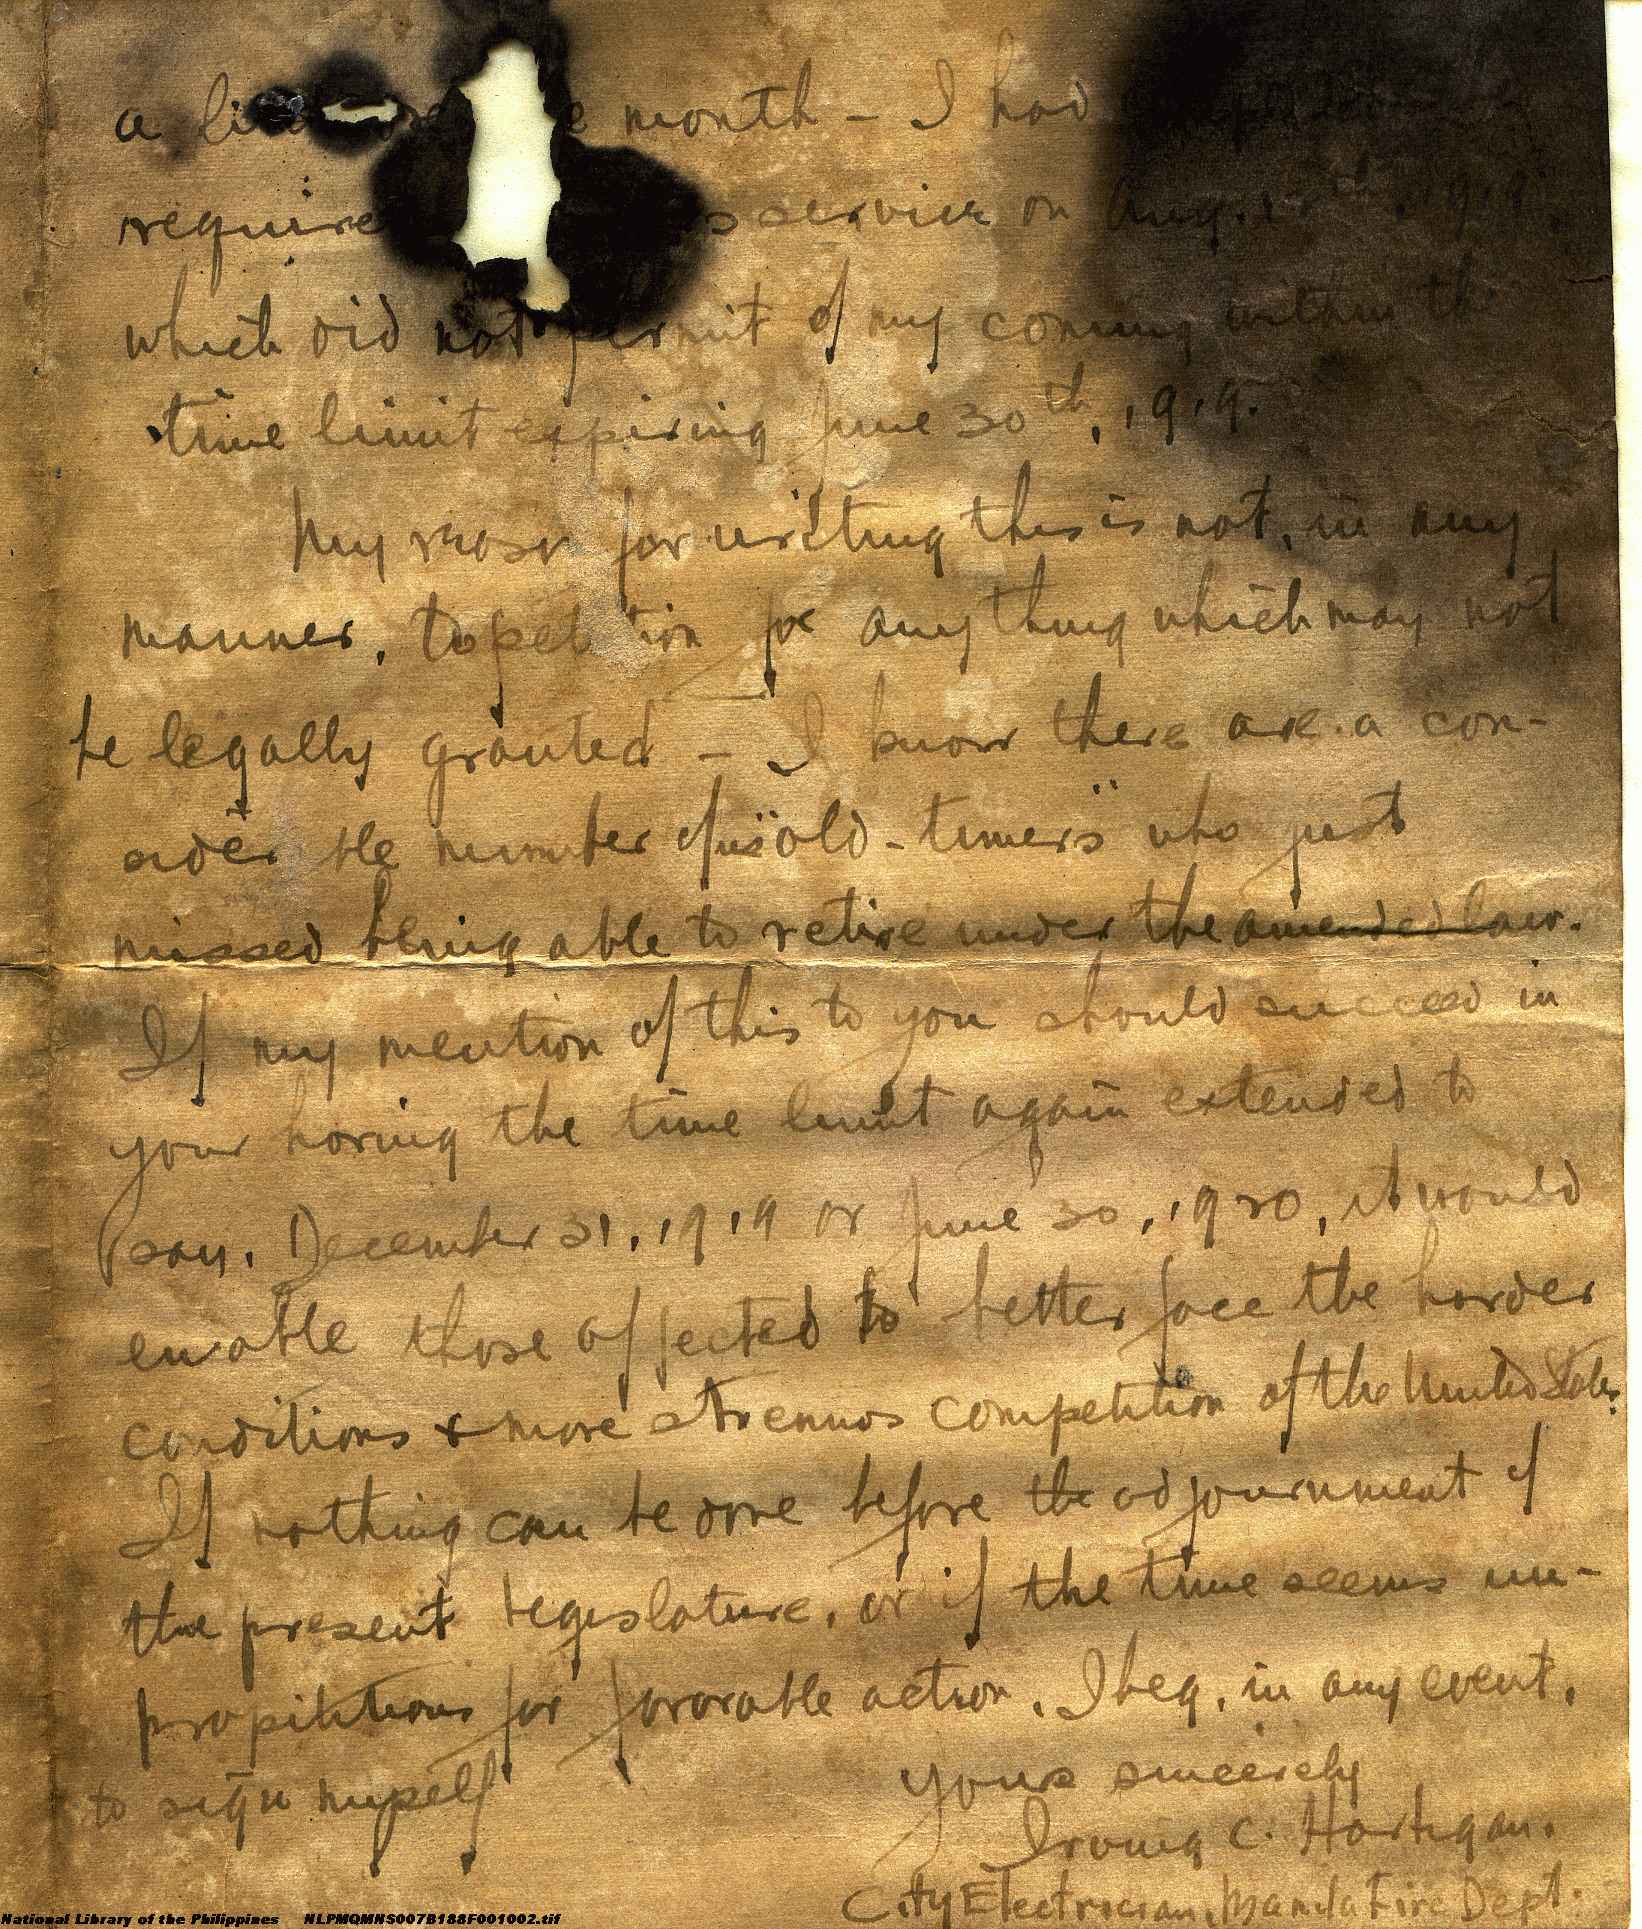 a month - I had
require service on Aug. 1919,
which did not permit of my coming within the
time limit expiring June 30th, 1919.
My reason for writing this is not, in any
manner, to petition for anything which may not
be legally granted - I know there are a con-
sider the number of us "old-timers" who just
missed being able to retire under the amended law.
If my mention of this to you should succeed in
your having the time limit again extended to
(say, December 31, 1919 or June 30, 1920, it would
enable those affected to better face the harder
conditions & more strenuos competition of the United States.
If nothing can be done before the adjournment of
the present legislature, or if the time seems un-
propititious for favorable action, I beg, in any event,
to sign myself
Yours sincerely
Irving C. Hartigan.
City Electrician, Manila Fire Dept.
National Library of the Philippines NLPMQMNS007B188F001002.tif